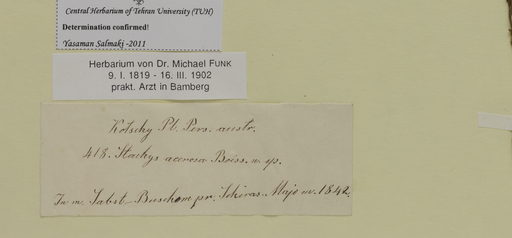 Central Herbarium of Tehran University (TUH)
Determination confirmed!
Yasaman Salmaki -2011
Herbarium von Dr. Michael FUNK
9. I. 1819 - 16. III. 1902
prakt. Arzt in Bamberg
Kotschy Pl. Pers. austr.
418. Stachys acerosa Boiss. n. sp.
In m. Sabst-Buschom pr. Schiras. Majo m. 1842.